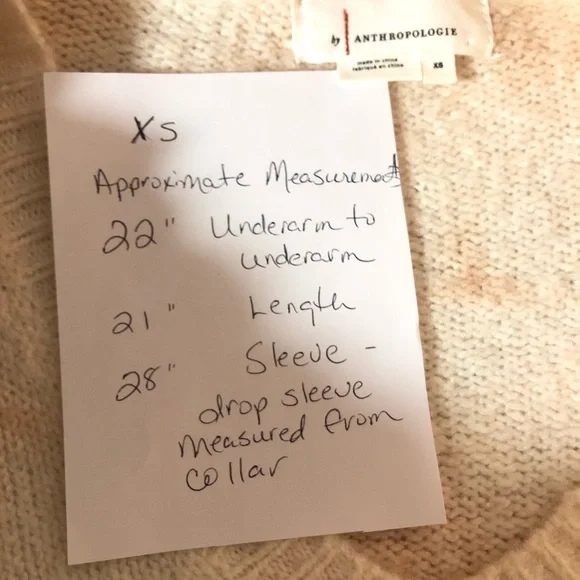 by ANTHROPOLOGIE
made in china
fabriqué en chine
XS
XS
Approximate Measurements
22" Underarm to
underarm
21" Length
28" Sleeve -
drop sleeve
measured from
collar